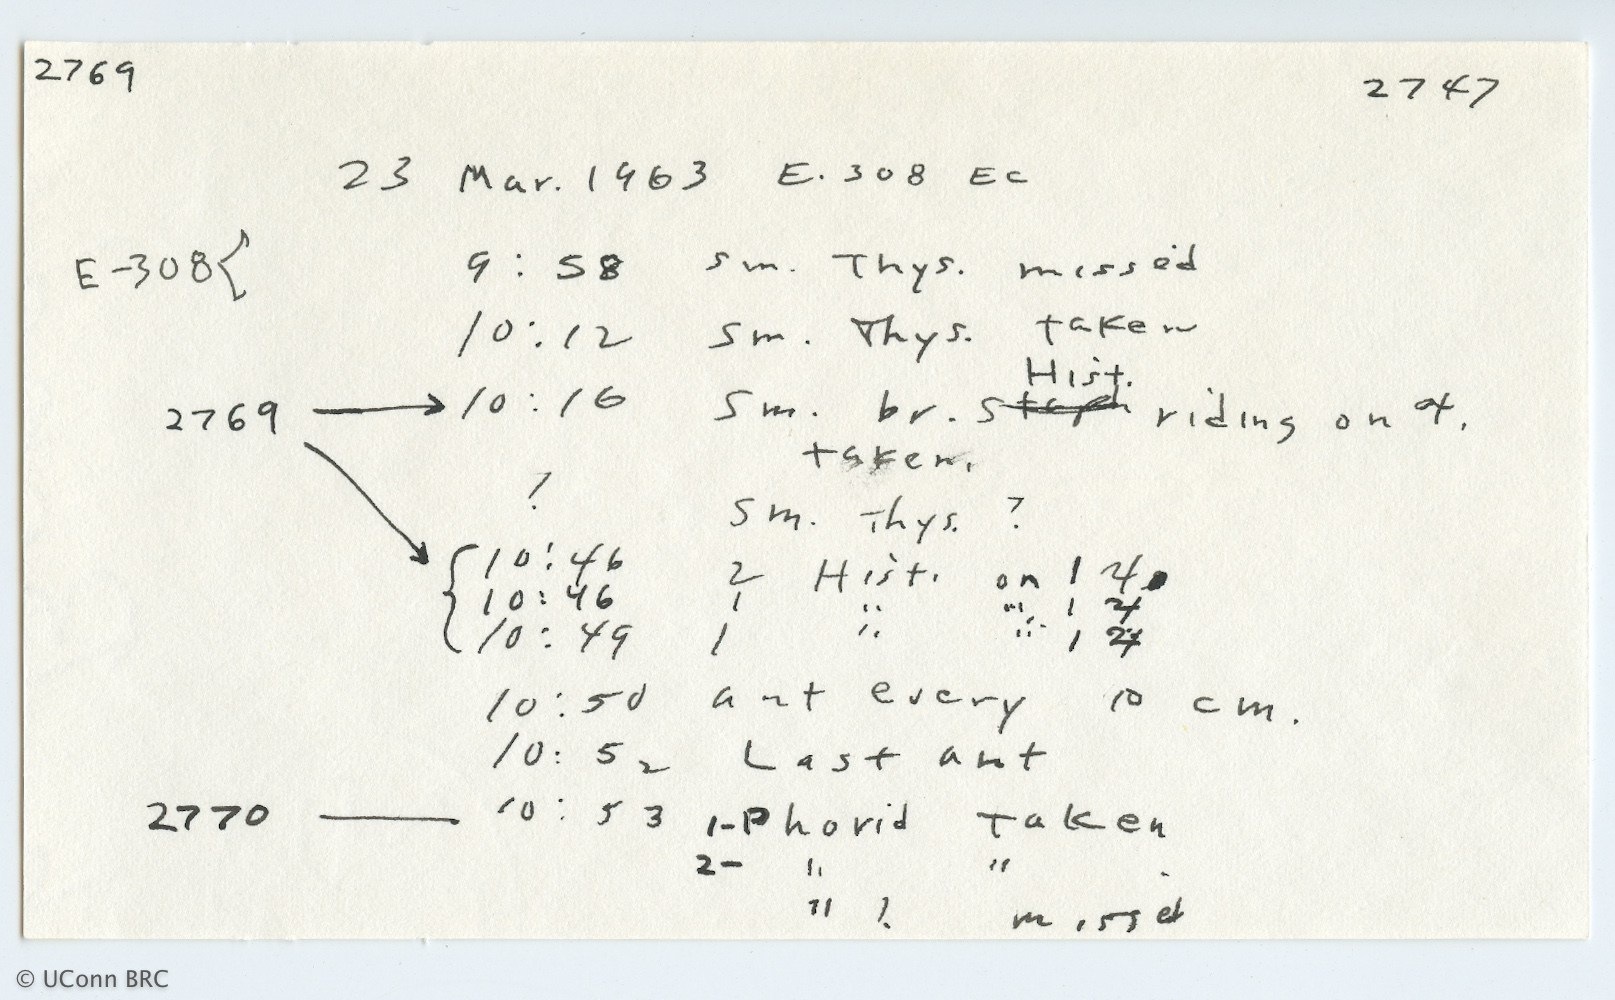 2769 2747
23 Mar. 1963 E. 308 Ec
E-308{ 9:58 Sm. Thys. missed
10:12 Sm. Thys. taken
Hist.
2769 → 10:16 Sm. br. Staph riding on ☿.
taken.
? Sm. Thys. ?
{10:46 2 Hist. on 1
10:46 1 " " 1
10:49 1 " " 1
10:50 ant every 10 cm.
10:52 Last ant
2770 — 10:53 1-Phorid taken
2- " "
" ? missd
© UConn BRC